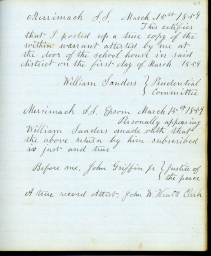 Merrimack S.S. March 15th 1859
This certifies
that I posted up a true copy of the
within warrant attested by me at
the door of the school house in said
district on the first day of March 1859
William Sanders } Prudential
Committee
Merrimack S.S. Epsom March 15th 1859
Personally appearing
William Sanders made oath that
the above return by him subscribed
is just and true
Before me, John Griffin Jr } Justice of
the peace
A true record Attest. John W. Clerk